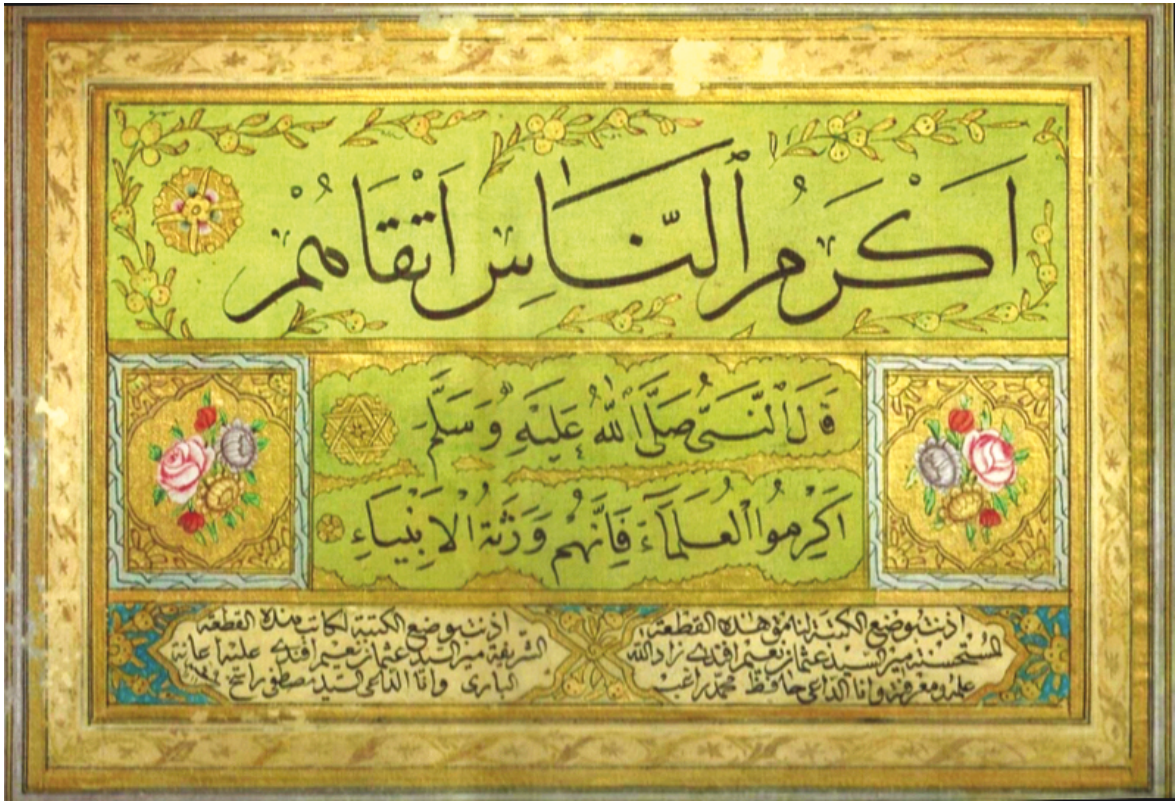 اَكْرَمُ ٱلنَّاسِ اَتْقَاهُمْ
قَالَ النَّبِىُّ صَلَّى اللهُ عَلَيْهِ وَسَلَّمَ
اَكْرِمُوا الْعُلَمَاءَ فَاِنَّهُمْ وَرَثَةُ الْاَنْبِيَاءِ
اذنت بوضع الكتبة لنامق هذه القطعة
المستحسنة السيد عثمان نعيم افندى زاد الله
علمه ومعرفته وانا الداعى حافظ محمد راغب
اذنت بوضع الكتبة لكاتب هذه القطعة
الشريفة السيد عثمان نعيم افندى عليه اعانة
البارى وانا الداعى السيد مصطفى راسخ